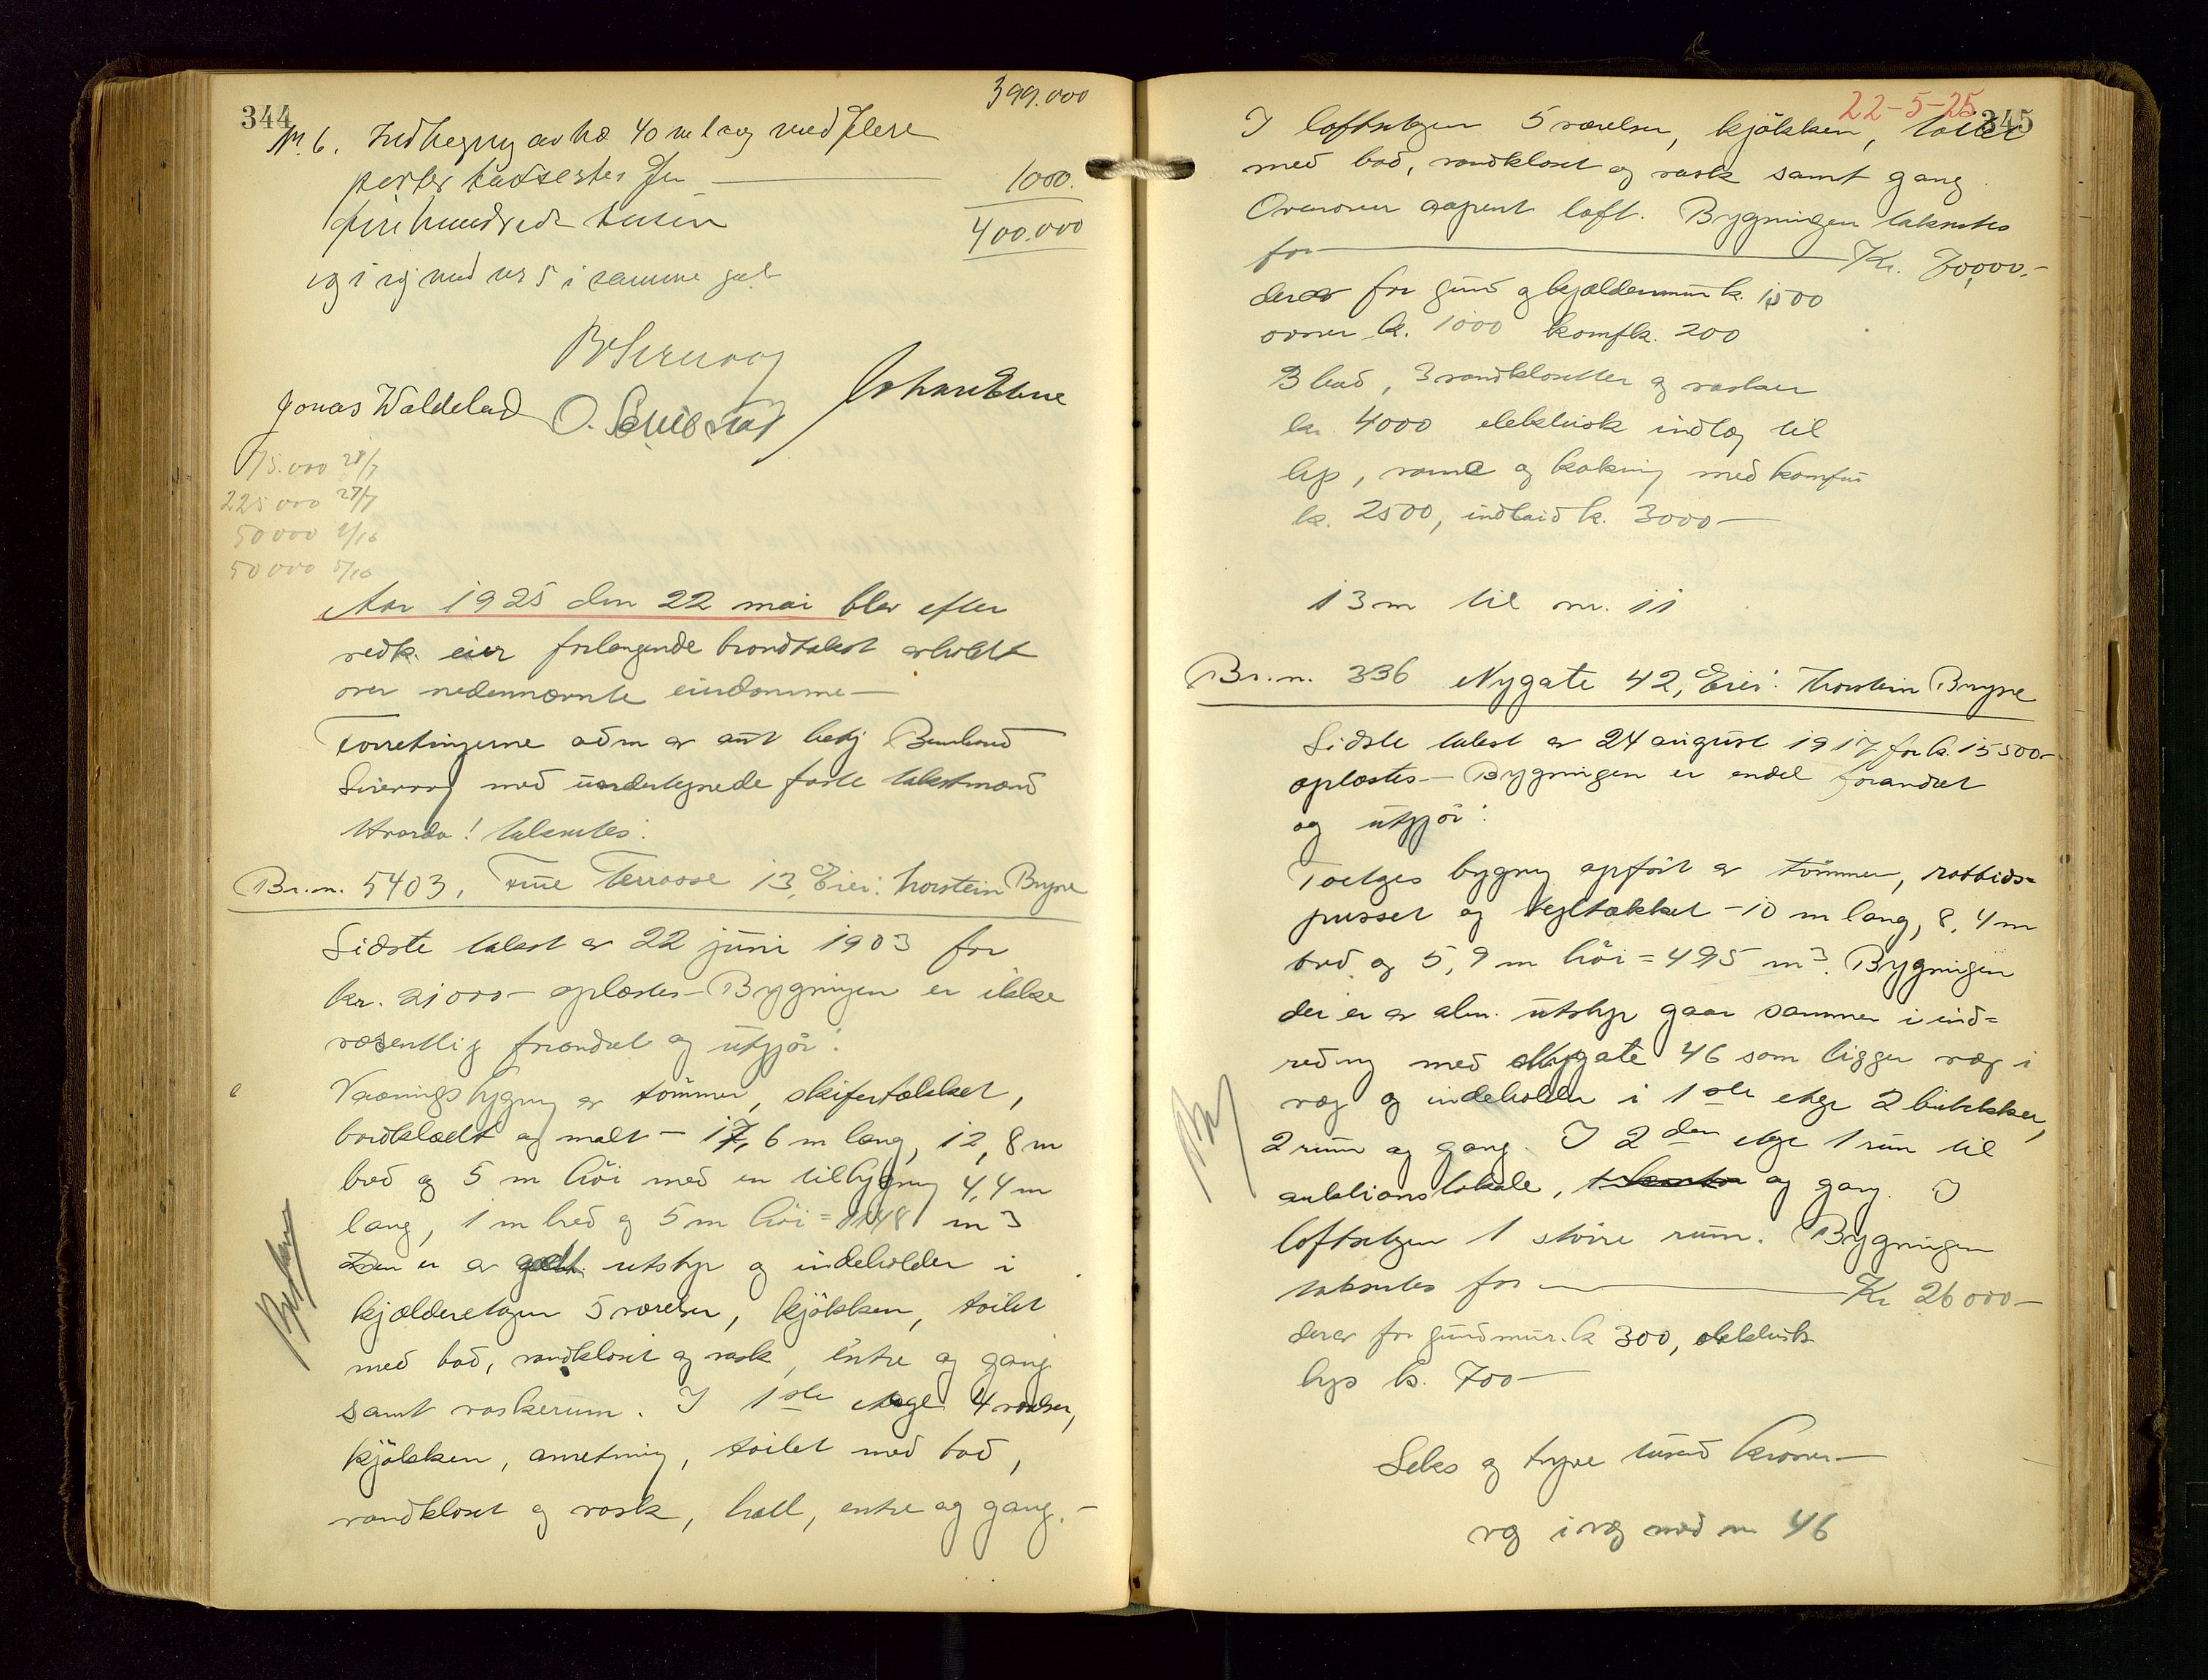 344
399.000
Nr. 6. Indhegning av ca 40 m lang med flere
porter taxeres for 1000.
firehundrede tusen 400.000
væg i væg med nr 5 i samme gate
B Sirevaag
Jonas Waldeland O. Johan Elune
75.000 28/7
225 000 27/7
50000 2/10
50 000 5/10
Aar 1925 den 22 mai blev efter
vedk. eier forlangende brandtakst avholdt
over nedennævnte eiendomme —
Forretningerne adm av aut betj Bernhard
Sirevaag med undertegnede faste takstmænd
Hvorda! taksertes:
Br.n. 5403, Fine Terrasse 13, Eier: Thorstein Bryne
Sidste takst av 22 juni 1903 for
kr. 21000 — oplæstes — Bygningen er ikke
væsentlig forandret og utgjör:
Vaaningsbygning av tömmer, skifertækket,
bordklædt og malt — 17,6 m lang, 12,8 m
bred og 5 m höi med en tilbygning 4,4 m
lang, 1 m bred og 5 m höi = 1148 m3
Den er av godt utstyr og indeholder i
kjælderetagen 5 værelser, kjökken, toilet
med bad, vandkloset og vask, entre og gang
samt vaskerum. I 1ste etage 4 værelser,
kjökken, anretning, toilet med bad,
vandkloset og vask, hall, entre og gang. —
22-5-25
345
I loftsetagen 5 værelser, kjökken, toilet
med bad, vandkloset og vask samt gang
Ovenover aapent loft. Bygningen taksertes
for Kr. 70,000.—
derav for grund og kjældermur k. 1500
ovner k. 1000 komf k. 200
3 bad, 3 vandklosetter og vasker
kr. 4000 elektrisk indlæg til
lys, varme og kokning med komfur
k. 2500, indbaid k. 3000 —
13 m til nr. 11
Br.n. 336 Nygate 42, Eier: Thorstein Bryne
Sidste takst av 24 august 1917 for k. 15500 —
oplæstes — Bygningen er endel forandret
og utgjör:
Toetages bygning opfört av tömmer, rabbids=
pusset og tegltækket — 10 m lang, 8,4 m
bred og 5,9 m höi = 495 m3. Bygningen
der er av alm. utstyr gaar sammen i ind=
redning med Nygate 46 som ligger væg i
væg og indeholder i 1ste etage 2 butikker,
2 rum og gang. I 2den etage 1 rum til
auktionslokale, og gang. I
loftsetagen 1 större rum. Bygningen
taksertes for Kr 26 000 —
derav for grundmur. k 300, elektrisk
lys k. 700 —
Seks og tyve tusend kroner —
væg i væg med nr 46